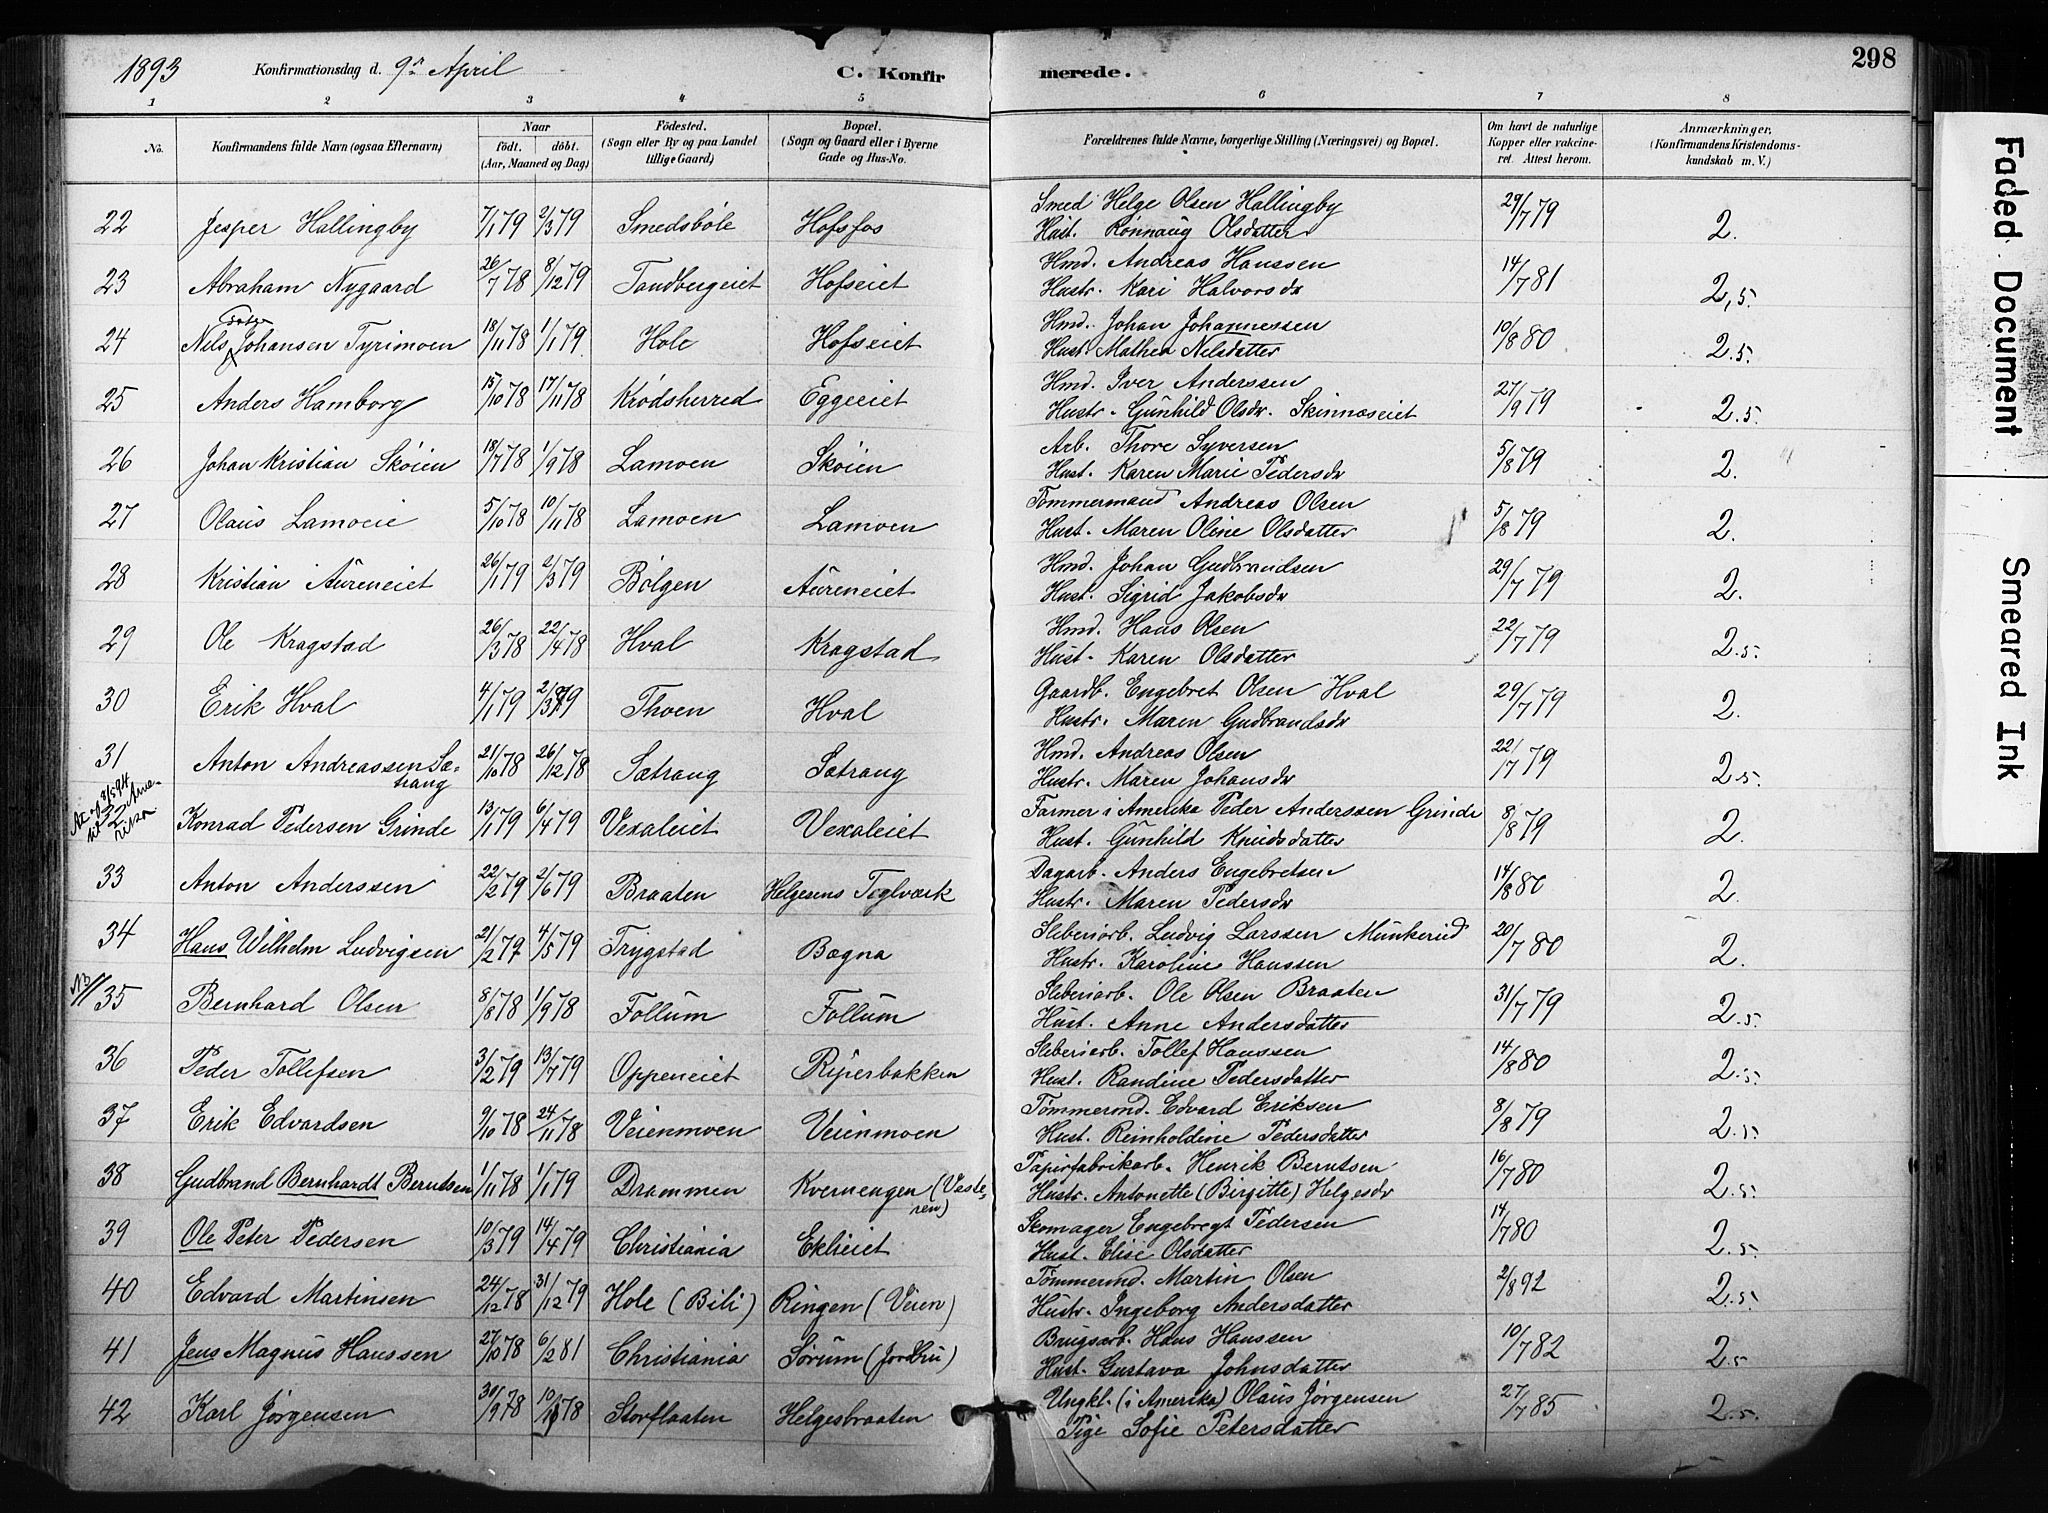 1893 Konfirmationsdag d. 9de April C. Konfirmerede. 298
1 2 3 4 5 6 7 8
No. Konfirmandens fulde Navn (ogsaa Efternavn) Naar født. døbt. (Aar, Maaned og Dag) Fødested. (Sogn eller By og paa Landet tillige Gaard) Bopæl. (Sogn og Gaard eller i Byerne Gade og Hus-No. Forældrenes fulde Navne, borgerlige Stilling (Næringsvei) og Bopæl. Om havt de naturlige Kopper eller vakcineret. Attest herom. Anmærkninger. (Konfirmandens Kristendomskundskab m. V.)
22 Jesper Hallingby 7/1 79 2/3 79 Smedsbøle Hofsfos Smed Helge Olsen Hallingby 29/7 79 2.
Hust. Rønnaug Olsdatter
23 Abraham Nygaard 26/7 78 8/12 79 Tandbergeiet Hofseiet Hmd. Andreas Hanssen 14/7 81 2,5.
Hustr. Kari Halvorsdr
24 Nels Johansen Tyrimoen 18/11 78 1/1 79. Hole Hofseiet Hmd. Johan Johannessen 10/8 80 2.5.
Hust. Mathea Nelsdatter
25 Anders Hamborg 15/10 78 17/11 78 Krødsherred Eggeeiet Hmd. Iver Anderssen 27/9 79 2.5.
Hustr. Gunhild Olsdr. Skinnæseiet
26 Johan Kristian Skøien 18/7 78 1/9 78 Lamoen Skøien Arb. Thore Syversen 5/8 79 2.
Hust. Karen Marie Pedersdr
27 Olaus Lamoeie 5/10 78 10/11 78 Lamoen Lamoen Tømmermand Andreas Olsen 5/8 79 2.
Hust. Maren Oline Olsdatter
28 Kristian Aureneiet 26/1 79 2/3 79 Bølgen Aureneiet Hmd. Johan Gudbrandsen 29/7 79 2.
Hust. Sigrid Jakobsdr
29 Ole Kragstad 26/3 78 22/4 78 Hval Kragstad Hmd. Hans Olsen 22/7 79 2.5.
Hust. Karen Olsdatter
30 Erik Hval 4/1 79 2/3 79 Thoen Hval Gaardb. Engebret Olsen Hval 29/7 79 2.
Hustr. Maren Gudbrandsdr
31 Anton Andreassen Sætrang 21/10 78 26/12 78 Sætrang Sætrang Hmd. Andreas Olsen 22/7 79 2.5.
Hustr. Maren Johansdr
32 Konrad Pedersen Grinde 13/1 79 6/4 79 Vexaleiet Vexaleiet Farmer i Amerika Peder Anderssen Grinde 8/8 79 2.
Hust. Gunhild Knudsdatter
33 Anton Anderssen 22/2 79 2/6 79 Braaten Helgesens Teglværk Dagarb. Anders Engebretsen 14/8 80 2.
Hustr. Maren Pedersdr
34 Hans Wilhelm Ludvigsen 21/2 79 4/5 79 Trygstad Bægna Sliberiarb. Ludvig Larssen Munkerud 20/7 80 2.
Hustr. Karoline Hanssen
NB 35 Bernhard Olsen 8/8 78 1/9 78 Follum Follum Sliberiarb. Ole Olsen Braaten 31/7 79 2.5.
Hust. Anne Andersdatter
36 Peder Tollefsen 3/2 79 13/7 79 Oppeneiet Riperbakken Sliberiarb. Tollef Hanssen 14/8 80 2.5.
Hust. Randine Pedersdatter
37 Erik Edvardsen 9/10 78 24/11 78 Veienmoen Veienmoen Tømmermd. Edvard Eriksen 8/8 79 2.5.
Hust. Reinholdine Pedersdatter
38 Gudbrand Bernhardt Berntsen 1/11 78 1/1 79 Drammen Kvernengen (Vesteren) Papirfabrikarb. Henrik Berntsen 16/7 80 2.5.
Hustr. Antonette (Birgitte) Helgesdr
39 Ole Peter Pedersen 10/3 79 14/4 79 Christiania Eklieiet Skomager Engebregt Pedersen 14/7 80 2.5.
Hust. Elise Olsdatter
40 Edvard Martinsen 24/12 78 31/12 79 Hole (Bili) Ringen (Veien) Tømmermd. Martin Olsen 2/8 92 2.5.
Hustr. Ingeborg Andersdatter
41 Jens Magnus Hanssen 27/10 78 6/2 81 Christiania Sørum (Jordbru) Brugsarb. Hans Hanssen 10/7 82 2.5.
Hust. Gustava Johnsdatter
42 Karl Jørgensen 30/9 78 10/11 78 Storflaaten Helgesbraaten Ungkl. (i Amerika) Olaus Jørgensen 27/7 85 2.5.
Pige Sofie Petersdatter
Faded Document
Smeared Ink